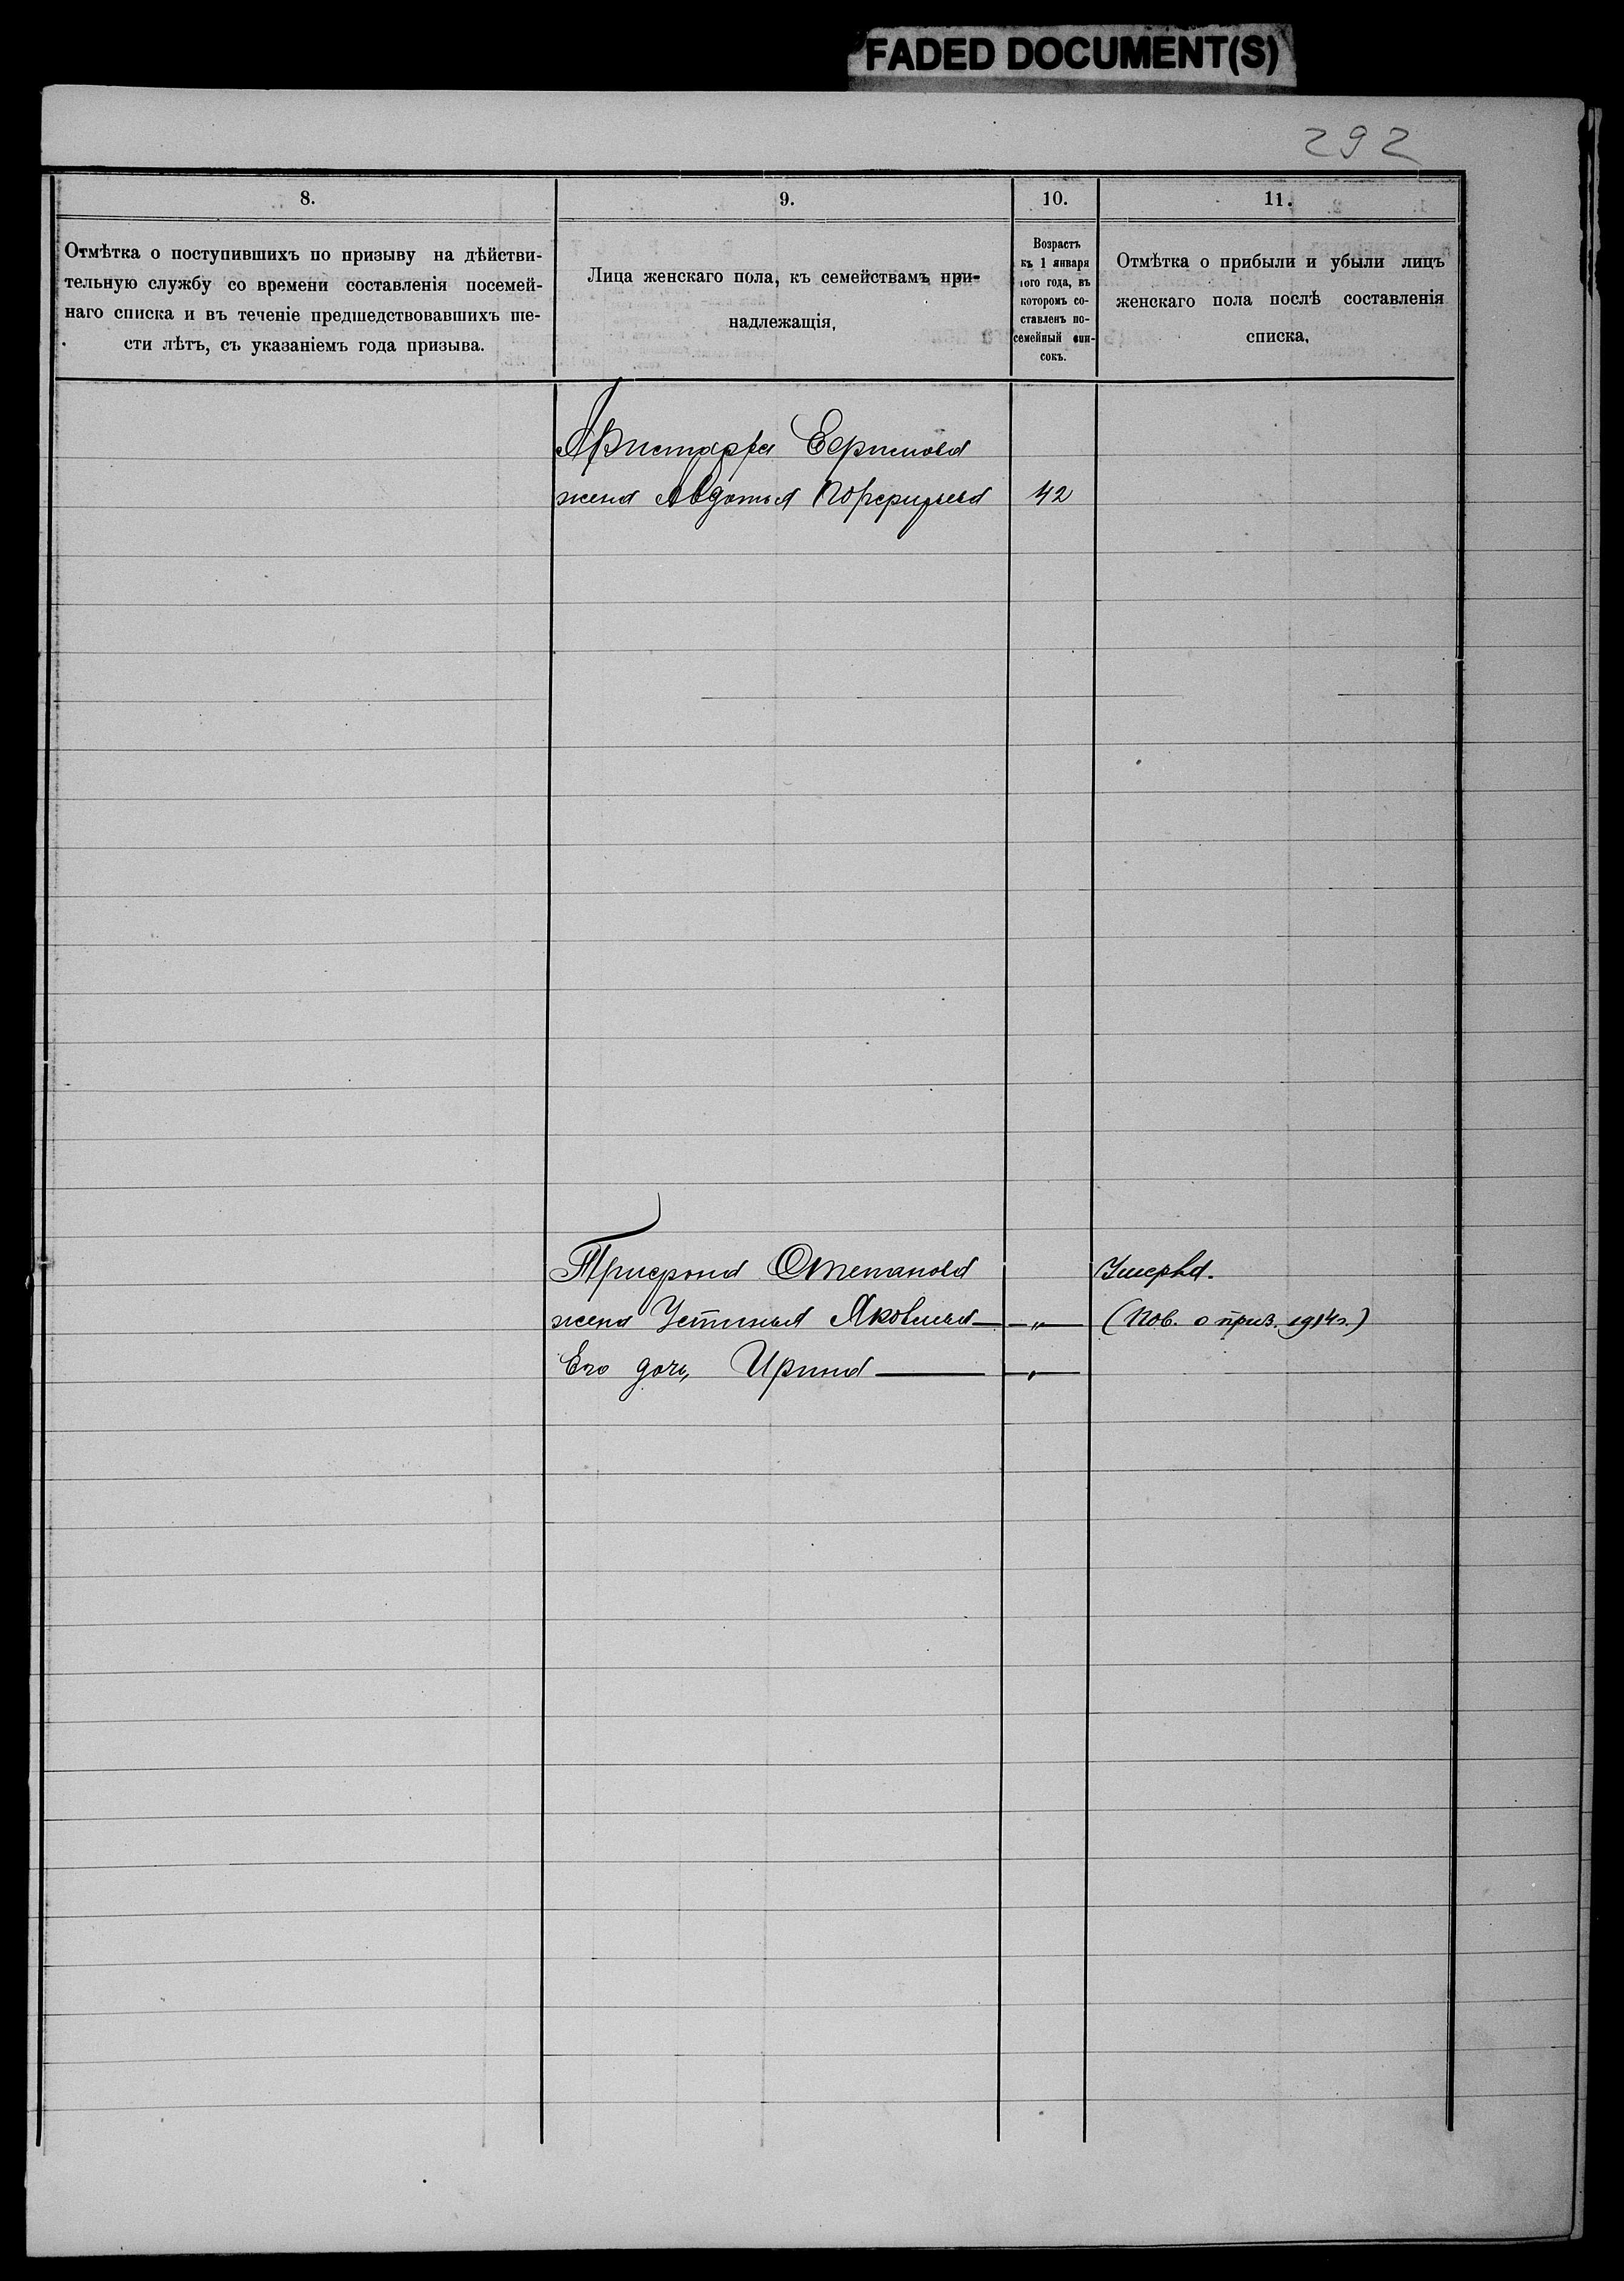 FADED DOCUMENT(S)
292
8.
9.
10.
11.
Отмѣтка о поступившихъ по призыву на дѣйстви-
тельную службу со времени составленія посемей-
наго списка и въ теченіе предшедствовавшихъ ше-
сти лѣтъ, съ указаніемъ года призыва.
Лица женскаго пола, къ семействамъ при-
надлежащія.
Возрастъ
къ 1 января
того года, въ
которомъ со-
ставленъ по-
семейный спи-
сокъ.
Отмѣтка о прибыли и убыли лицъ
женскаго пола послѣ составленія
списка.
Аристарха Ефимова
жена Авдотья Порфирьева 42
Трифона Степанова Умерла.
жена Устинья Яковлева — „ — (Пов. о приз. 1914 г.)
Его дочь, Ирина — „ —